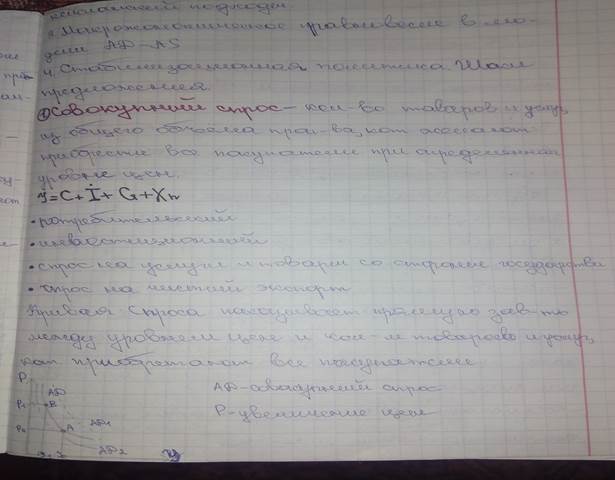 кейнсианский подходы
3. Макроэкономическое равновесие в мо-
дели AD-AS
4. Стабилизационная политика. Шоки
предложения.
① Совокупный спрос – кол-во товаров и услуг,
из общего объёма произ-ва, кот. желают
приобрести все покупатели при определённом
уровне цен.
y=C+I+G+Xn
• потребительский
• инвестиционный
• спрос на услуги и товары со стороны государства
• спрос на чистый экспорт
Кривая спроса показывает зав-ть
между уровнем цен и кол-м товаров и услуг,
кот. приобретают все покупатели
P
AD
AD-совокупный спрос
P1 B
AD1
P-увеличение цен
P2 A
AD2
y